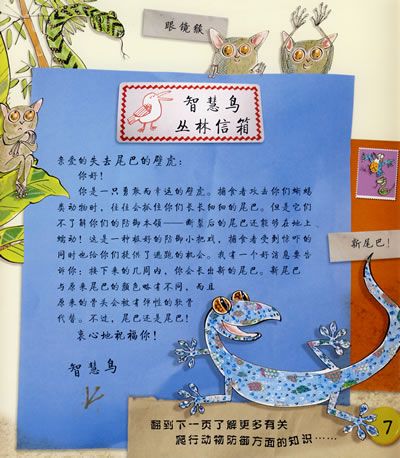 眼镜猴
智慧鸟
丛林信箱
亲爱的失去尾巴的壁虎：
你好！
你是一只勇敢而幸运的壁虎。捕食者攻击你们蜥蜴
类动物时，往往会抓住你们长长细细的尾巴。但是它们
不了解你们的防御本领——断裂后的尾巴还能够在地上
蠕动！这是一种极好的防御小把戏，捕食者受到惊吓的
同时也给你们提供了逃跑的机会。我有一个好消息要告
诉你：接下来的几周内，你会长出新的尾巴。新尾巴
与原来尾巴的颜色略有不同，而且
原来的骨头会被有弹性的软骨
代替。不过，尾巴还是尾巴！
衷心地祝福你！
智慧鸟
新尾巴！
翻到下一页了解更多有关
爬行动物防御方面的知识……
7